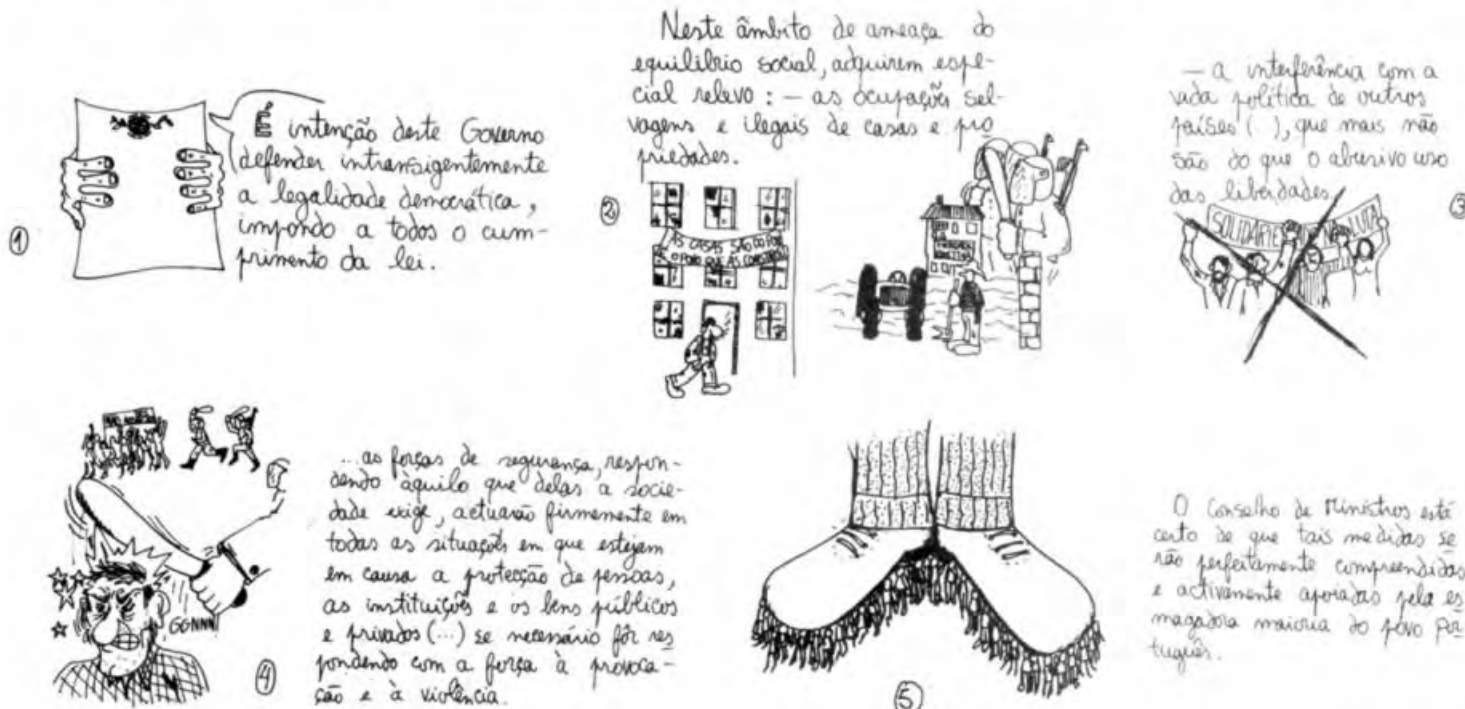 É intenção deste Governo
defender intransigentemente
a legalidade democrática,
impondo a todos o cum-
primento da lei.
①
Neste âmbito de ameaça do
equilíbrio social, adquirem espe-
cial relevo: — as ocupações sel-
vagens e ilegais de casas e pro
priedades.
②
AS CASAS SÃO DO POVO
O POVO QUE AS CONSTROI
— a interferência com a
vida política de outros
países (..), que mais não
são do que o abusivo uso
das liberdades.
③
SOLIDARIE NA LUTA
... as forças de segurança, respon-
dendo àquilo que delas a socie-
dade exige, actuarão firmemente em
todas as situações em que estejam
em causa a protecção de pessoas,
as instituições e os bens públicos
e privados (...) se necessário fôr res
pondendo com a força à provoca-
ção e à violência.
GONNN
④
⑤
O Conselho de Ministros está
certo de que tais medidas se
rão perfeitamente compreendidas
e activamente apoiadas pela es
magadora maioria do povo por
tuguês.